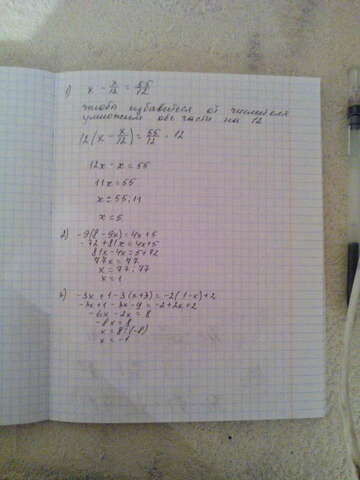 1) x - x/12 = 55/12
чтобы избавиться от числителя
умножим обе части на 12
12(x - x/12) = 55/12 · 12
12x - x = 55
11x = 55
x = 55 : 11
x = 5
2) -9(8 - 9x) = 4x + 5
-72 + 81x = 4x + 5
81x - 4x = 5 + 72
77x = 77
x = 77 : 77
x = 1
3) -3x + 1 - 3(x + 3) = -2(1 - x) + 2
-3x + 1 - 3x - 9 = -2 + 2x + 2
-6x - 2x = 8
-8x = 8
x = 8 : (-8)
x = -1